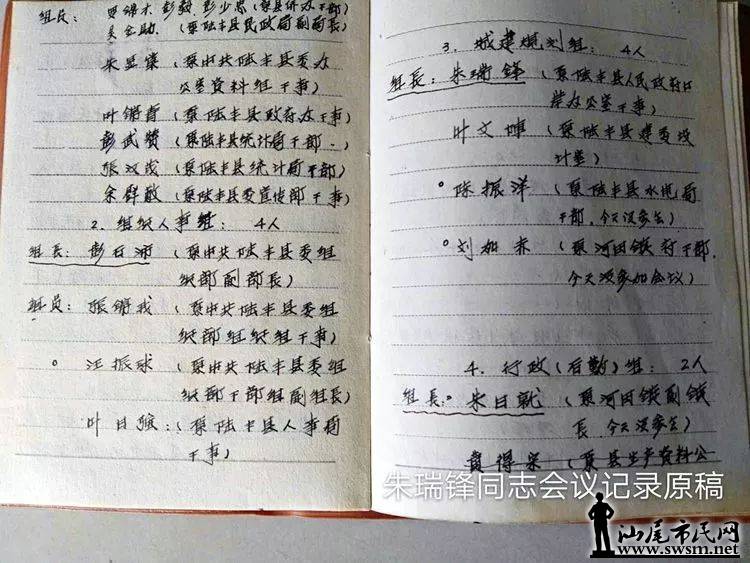 组员: 贾锦木 彭毅 彭少思 (原县侨办干部)
吴金助. (原陆丰县民政局副局长)
朱显集 (原中共陆丰县委办
公室资料组干事)
叶锦育 (原陆丰县政府办干事)
彭武赞 (原陆丰县统计局干部.)
张汉茂 (原陆丰县统计局干部)
余群敢 (原陆丰县委宣传部干事)
2. 组织人事组: 4人
组长: 彭日沛 (原中共陆丰县委组
织部副部长)
组员: 张锦城 (原中共陆丰县委组
织部组织组干事)
汪振球 (原中共陆丰县委组
织部干部组副组长)
叶日 : (原陆丰县人事局
干事)
3. 城建规划组: 4人
组长: 朱瑞锋 (原陆丰县人民政府口
岸办公室干事)
叶文 (原陆丰县建委设
计室)
陈振洋 (原陆丰县水电局
干部, 今天没参会)
刘如 (原河田镇府干部,
今天没参加会议)
4. 行政(后勤)组: 2人
组长: 朱日就 (原河田镇副镇
长, 今天没参会)
黄得 (原县生产资料公
朱瑞锋同志会议记录原稿
汕尾市民网
www.swsm.net